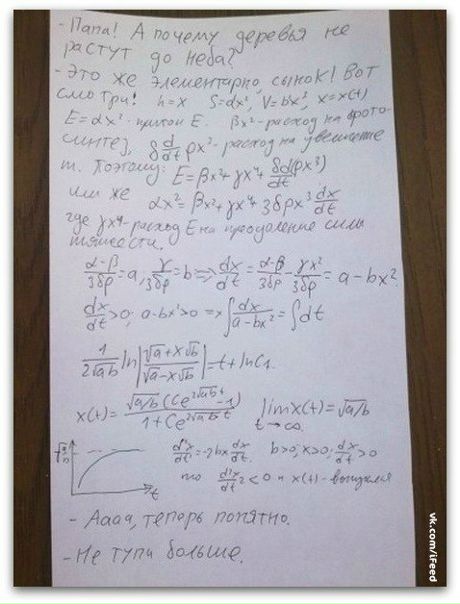 - Папа! А почему деревья не
растут до неба?
- Это же элементарно, сынок! Вот
смотри! h=x S=αx², V=bx³, x=x(t)
E=αx² - приток E. βx² - расход на фото-
синтез, δ d/dt ρx³ - расход на увеличение
m. Поэтому: E=βx²+γx⁴+ δd(ρx³)/dt
или же αx²=βx²+γx⁴+3δρx³ dx/dt
где γx⁴ - расход E на преодоление силы
тяжести.
(α-β)/3δρ = a, γ/3δρ = b => dx/dt = (α-β)/3δρ - γx²/3δρ = a-bx²
dx/dt>0; a-bx²>0 => ∫ dx/(a-bx²) = ∫dt
1/(2√ab) ln|(√a+x√b)/(√a-x√b)| = t+lnC₁.
x(t)= √a/b (Ce^(2√ab t) -1)/(1+Ce^(2√ab t)) lim x(t)=√a/b
t→∞
√a/b d²x/dt²=-2bx dx/dt b>0; x>0; dx/dt>0
t то d²x/dt²<0 и x(t) - выпуклая
- Аааа, теперь понятно.
- Не тупи больше.
vk.com/iFeed